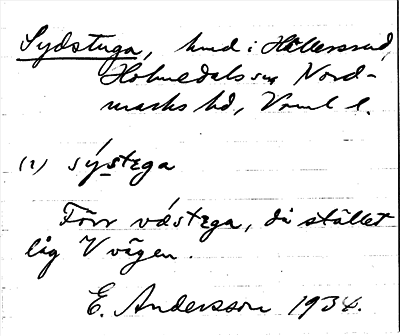 Sydstuga, hmd i Hällersrud,
Holmedals sn Nord-
marks hd, Vrml l.
(1) sýstega
Förr västega, då stället
låg V vägen.
E. Andersson 1934.